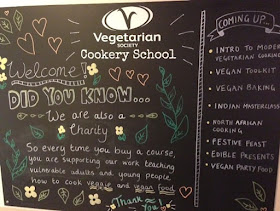 Vegetarian
SOCIETY
Cookery School
Welcome!
DID YOU KNOW...
We are also a
Charity
So every time you buy a course,
you are supporting our work teaching
vulnerable adults and young people,
how to cook veggie and vegan food.
Thank you
COMING UP...
INTRO TO MODERN
VEGETARIAN COOKING
VEGAN TOOLKIT
VEGAN BAKING
INDIAN MASTERCLASS
NORTH AFRICAN
COOKING
FESTIVE FEAST
EDIBLE PRESENTS
VEGAN PARTY FOOD